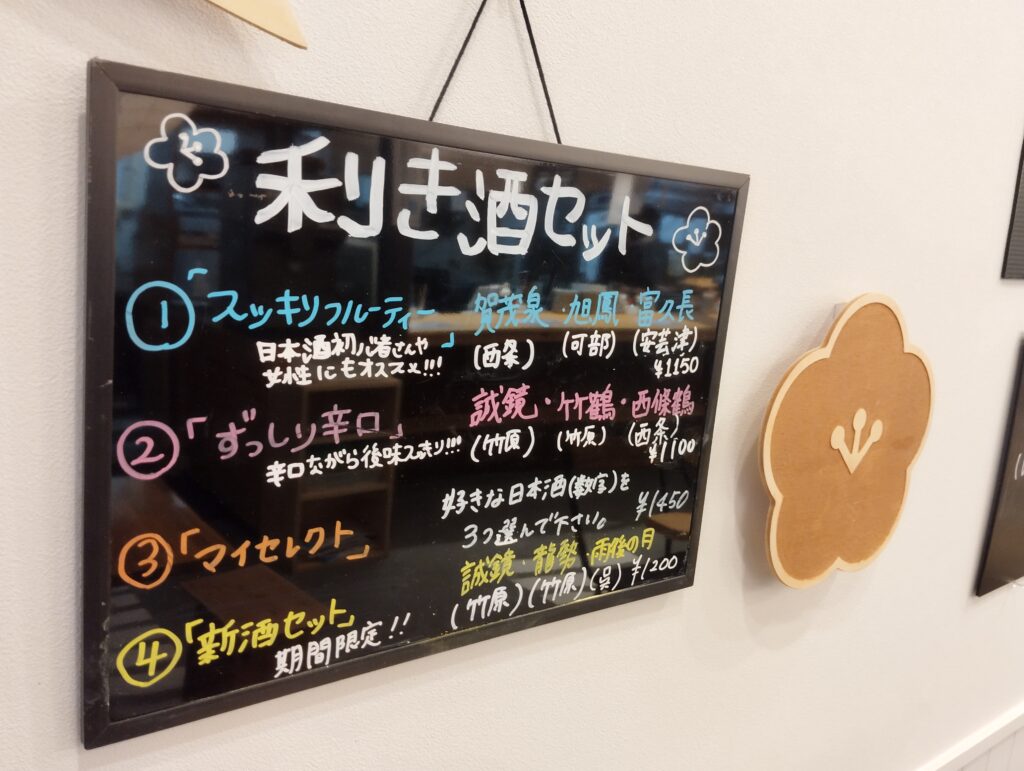 利き酒セット
① 「スッキリフルーティー」 賀茂泉・旭鳳・富久長
日本酒初心者さんや (西条) (可部) (安芸津)
女性にもオススメ!!! ¥1150
② 「ずっしり辛口」 誠鏡・竹鶴・西條鶴
辛口ながら後味スッキリ!!! (竹原) (竹原) (西条)
¥1100
③ 「マイセレクト」 好きな日本酒(数字)を
3つ選んで下さい。 ¥1450
④ 「新酒セット」 誠鏡・龍勢・雨後の月
期間限定!! (竹原) (竹原) (呉) ¥1200